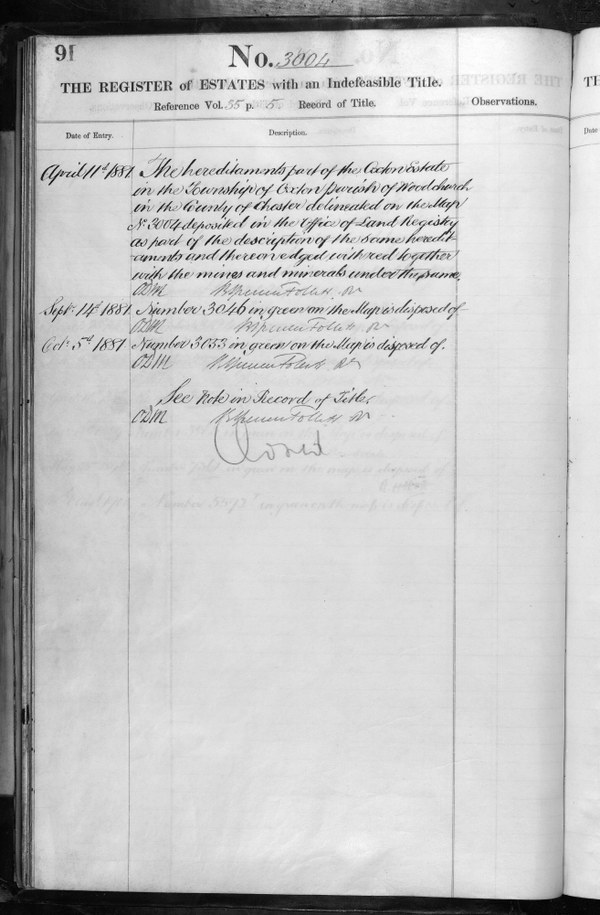 91
No. 3004
THE REGISTER of ESTATES with an Indefeasible Title.
Reference Vol. 55 p. 5 Record of Title.
Observations.
Date of Entry.
Description.
April 11th 1881 The hereditaments part of the Oxton Estate
in the Township of Oxton Parish of Woodchurch
in the County of Chester delineated on the Map
No 3004 deposited in the Office of Land Registry
as part of the description of the same heredit-
aments and thereon edged with red together
with the mines and minerals under the same.
ODM B Spencer Follett Rr
Sept. 14th 1881 Number 3046 in green on the Map is disposed of
ODM B Spencer Follett Rr
Oct. 5th 1881 Number 3053 in green on the Map is disposed of.
ODM B Spencer Follett Rr
See Note in Record of Title.
ODM B Spencer Follett Rr
Closed